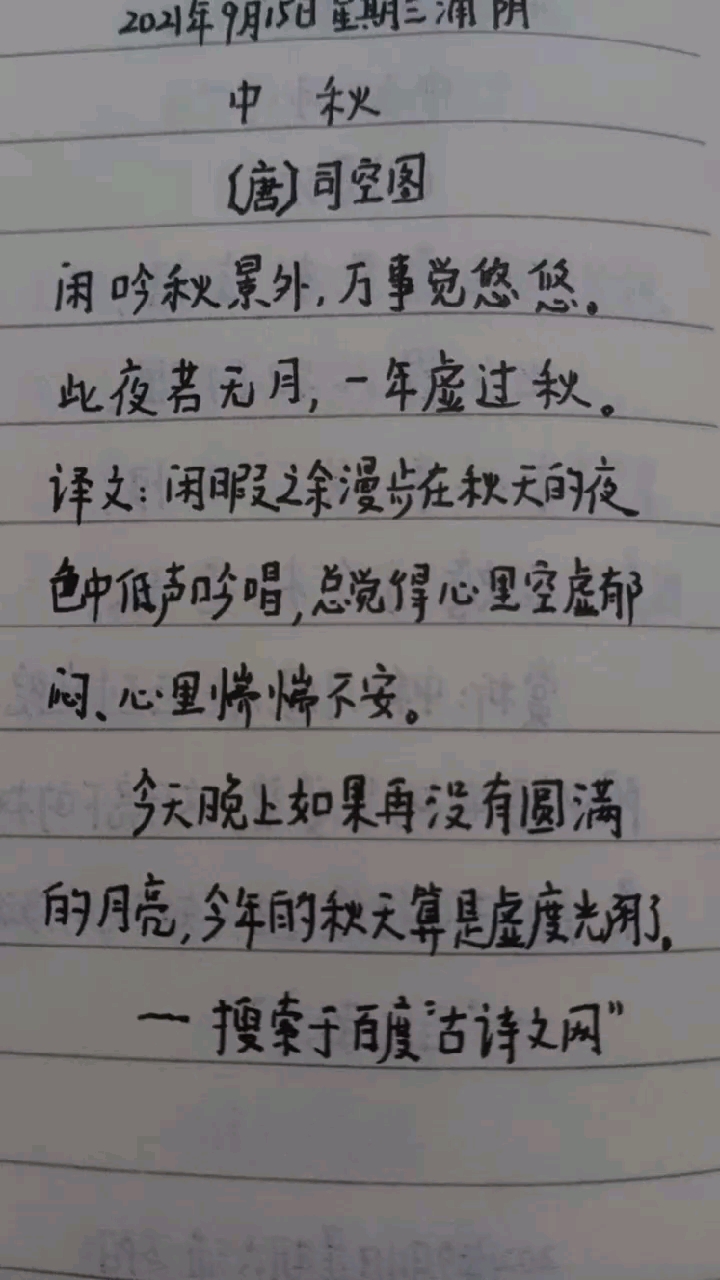 2021年9月15日 星期三 浦阴
中 秋
〔唐〕司空图
闲吟秋景外，万事觉悠悠。
此夜若无月，一年虚过秋。
译文：闲暇之余漫步在秋天的夜
色中低声吟唱，总觉得心里空虚郁
闷、心里惴惴不安。
今天晚上如果再没有圆满
的月亮，今年的秋天算是虚度光阴了。
一 搜索于百度“古诗文网”